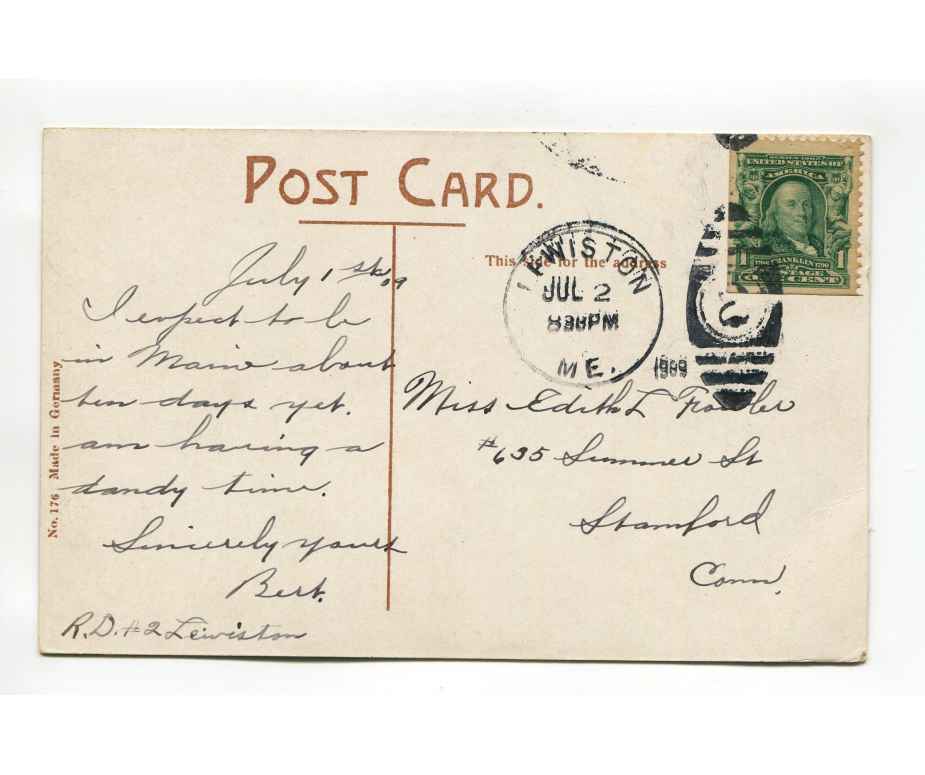 POST CARD.
This side for the address
July 1st 09
I expect to be
in Maine about
ten days yet.
am having a
dandy time.
Sincerely yours
Bert.
R.D. #2 Lewiston
No. 176 Made in Germany
LEWISTON
JUL 2
PM
ME.
1909
SERIES 1902
UNITED STATES OF
AMERICA
1706 FRANKLIN 1790
1 1
POSTAGE
ONE CENT
Miss Edith L Fowler
#635 Summer St
Stamford
Conn.